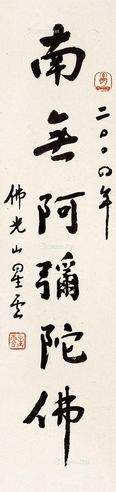 二〇〇〇年
南無阿彌陀佛
佛光山星雲